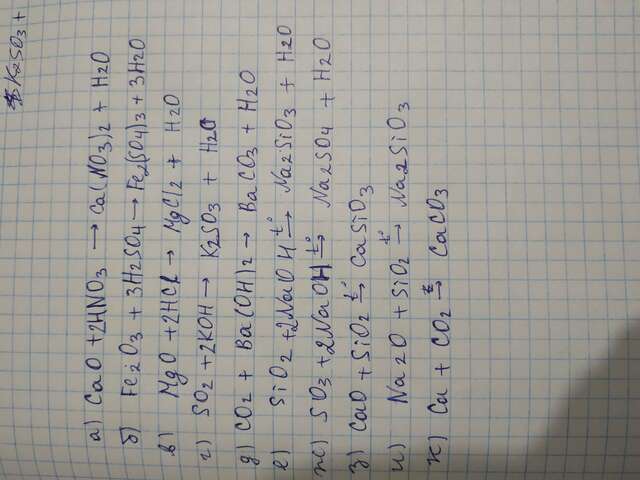 K2SO3 +
а) CaO + 2HNO3 → Ca(NO3)2 + H2O
б) Fe2O3 + 3H2SO4 → Fe2(SO4)3 + 3H2O
в) MgO + 2HCl → MgCl2 + H2O
г) SO2 + 2KOH → K2SO3 + H2O
д) CO2 + Ba(OH)2 → BaCO3 + H2O
е) SiO2 + 2NaOH t°→ Na2SiO3 + H2O
ж) SO3 + 2NaOH t°→ Na2SO4 + H2O
з) CaO + SiO2 t°→ CaSiO3
и) Na2O + SiO2 t°→ Na2SiO3
к) Ca + CO2 t→ CaCO3